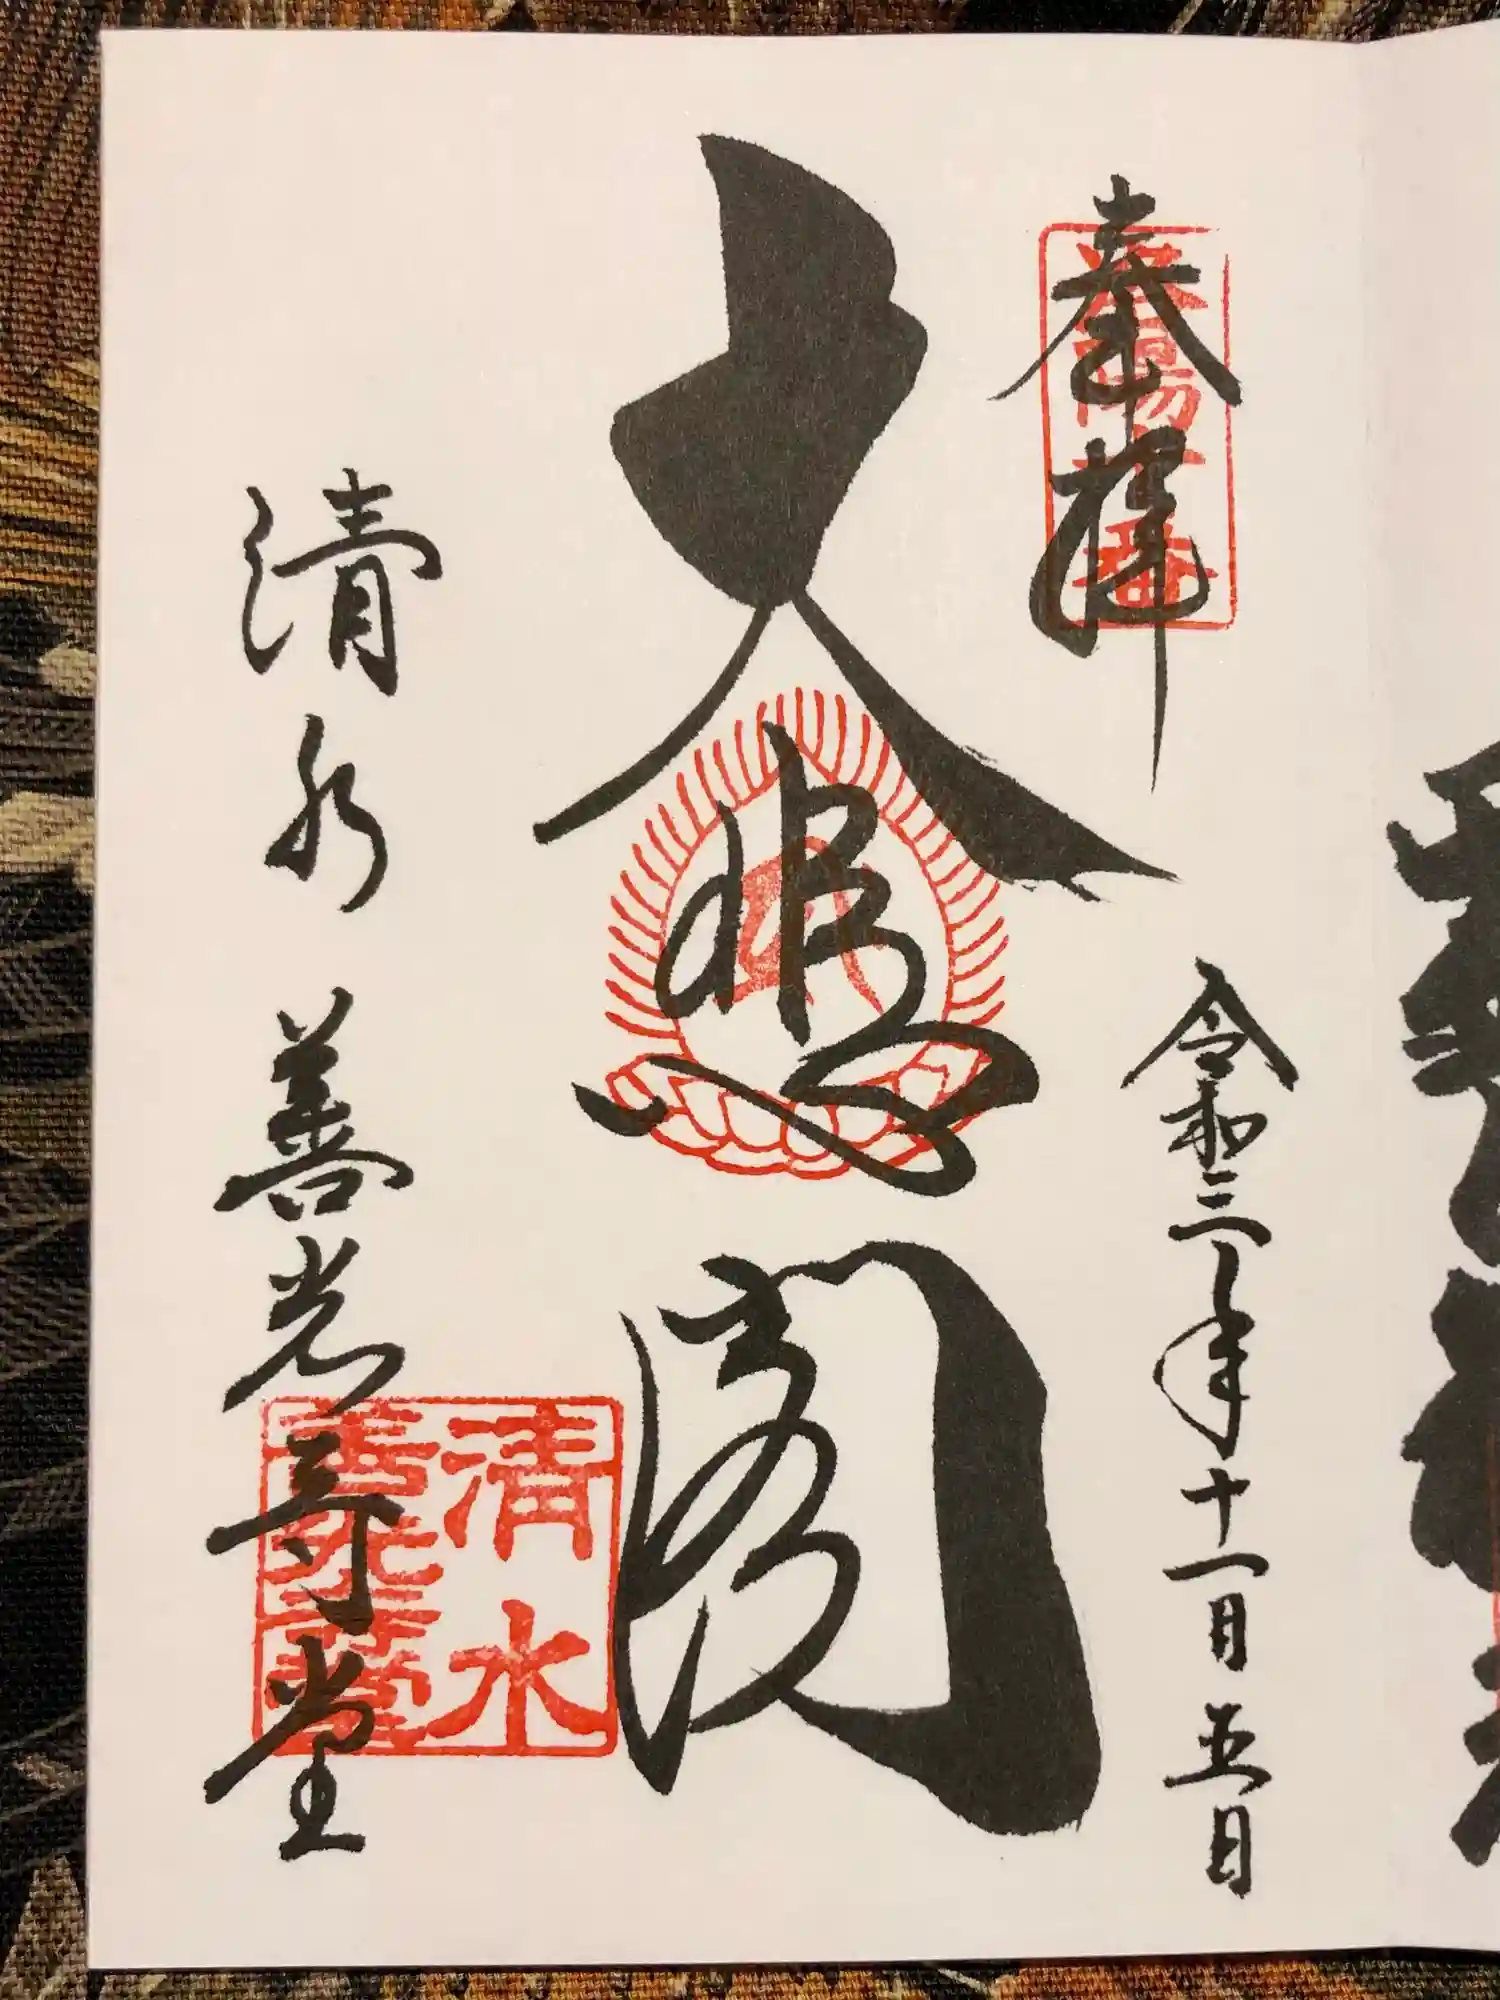 奉拝
洛陽十番
令和三年十一月五日
大悲閣
清水善光寺堂
清水
善光寺堂